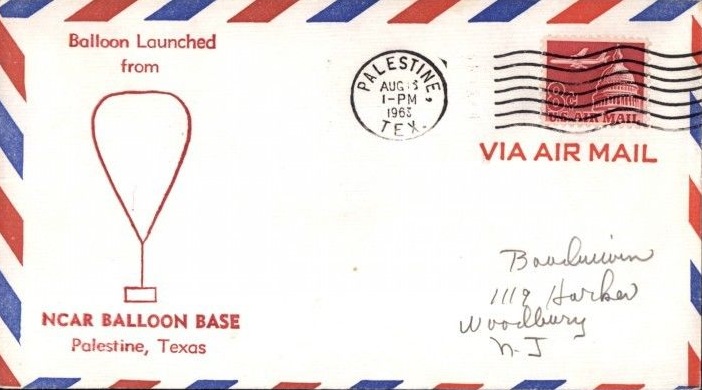 Balloon Launched
from
NCAR BALLOON BASE
Palestine, Texas
PALESTINE,
AUG
1-PM
1963
TEX.
8c
U.S. AIR MAIL
VIA AIR MAIL
1119 Harker
Woodbury
N-J